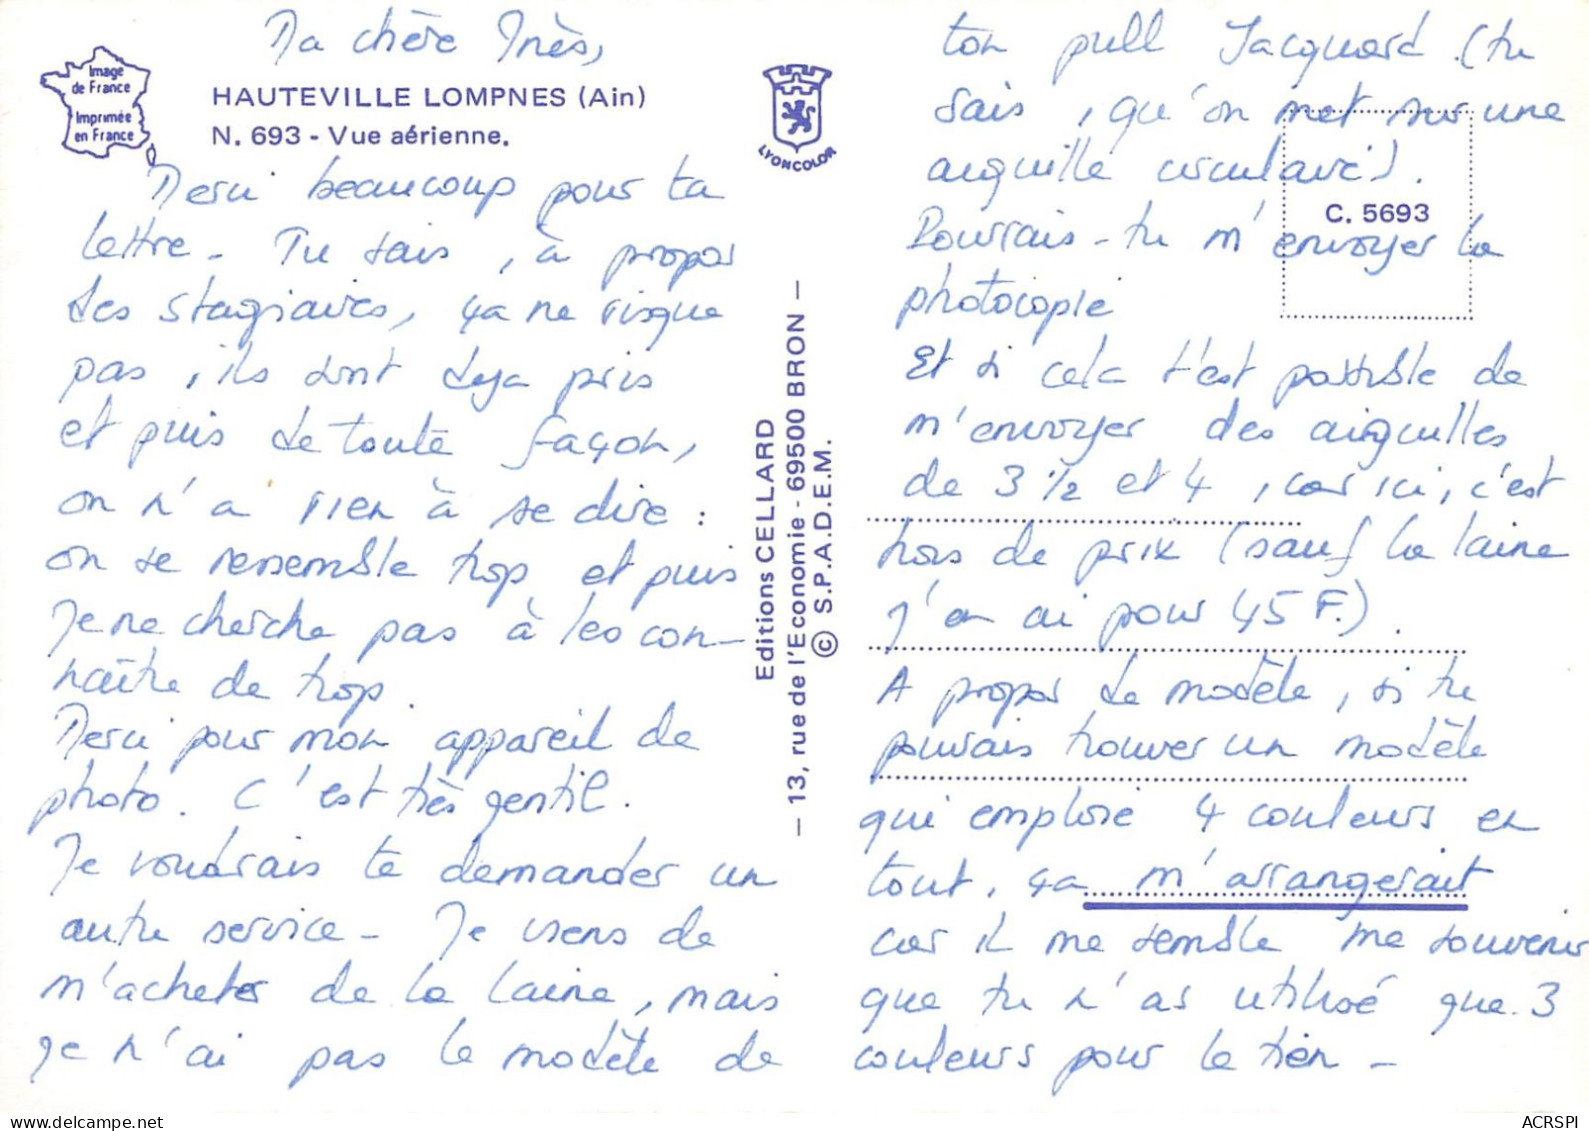 Ma chère Inès,
Image
de France
Imprimée
en France
HAUTEVILLE LOMPNES (Ain)
N. 693 - Vue aérienne.
LYONCOLOR
Merci beaucoup pour ta
lettre - Tu sais, à propos
des stagiaires, ça ne risque
pas, ils sont déjà pris
et puis de toute façon,
on n'a rien à se dire :
on se ressemble trop et puis
je ne cherche pas à les con-
naître de trop.
Merci pour mon appareil de
photo. C'est très gentil.
Je voudrais te demander un
autre service - Je viens de
m'acheter de la laine, mais
je n'ai pas le modèle de
Editions CELLARD
— 13, rue de l'Economie - 69500 BRON —
© S.P.A.D.E.M.
ton pull Jacquard (tu
sais, qu'on met sur une
aiguille circulaire).
C. 5693
Pourrais-tu m'envoyer la
photocopie
Et si cela t'est possible de
m'envoyer des aiguilles
de 3 1/2 et 4, car ici, c'est
hors de prix (sauf la laine
j'en ai pour 45 F.).
A propos de modèle, si tu
pouvais trouver un modèle
qui emploie 4 couleurs en
tout, ça m'arrangerait
car il me semble me souvenir
que tu n'as utilisé que 3
couleurs pour le tien -
ACRSPI